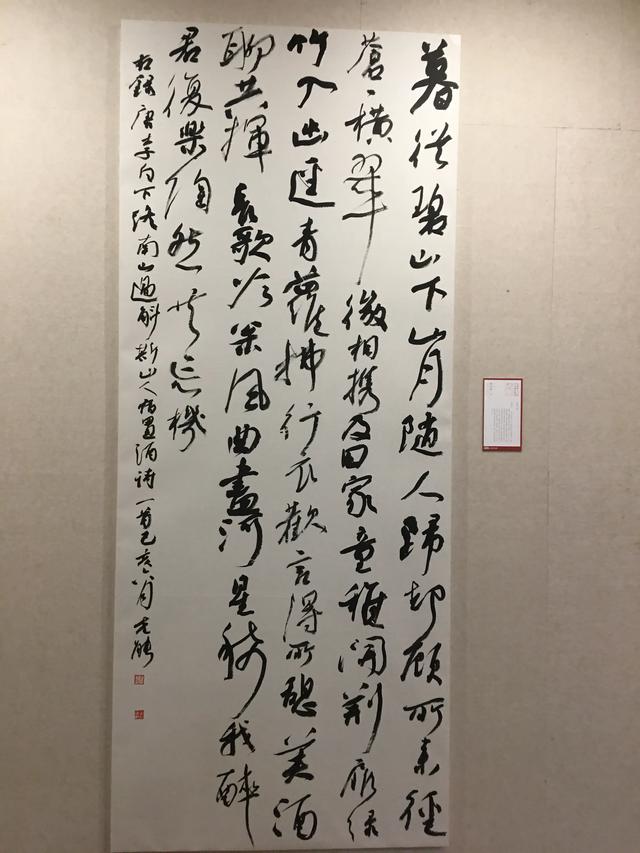 暮從碧山下山月随人歸却顧所来徑
蒼々横翠微相携及田家童稚開荆扉緑
竹入幽逕青蘿拂行衣歡言得所憩美酒
聊共揮長歌吟松風曲盡河星稀我醉
君復樂陶然共忘機
右錄唐李白下終南山過斛斯山人宿置酒詩一首己亥八月